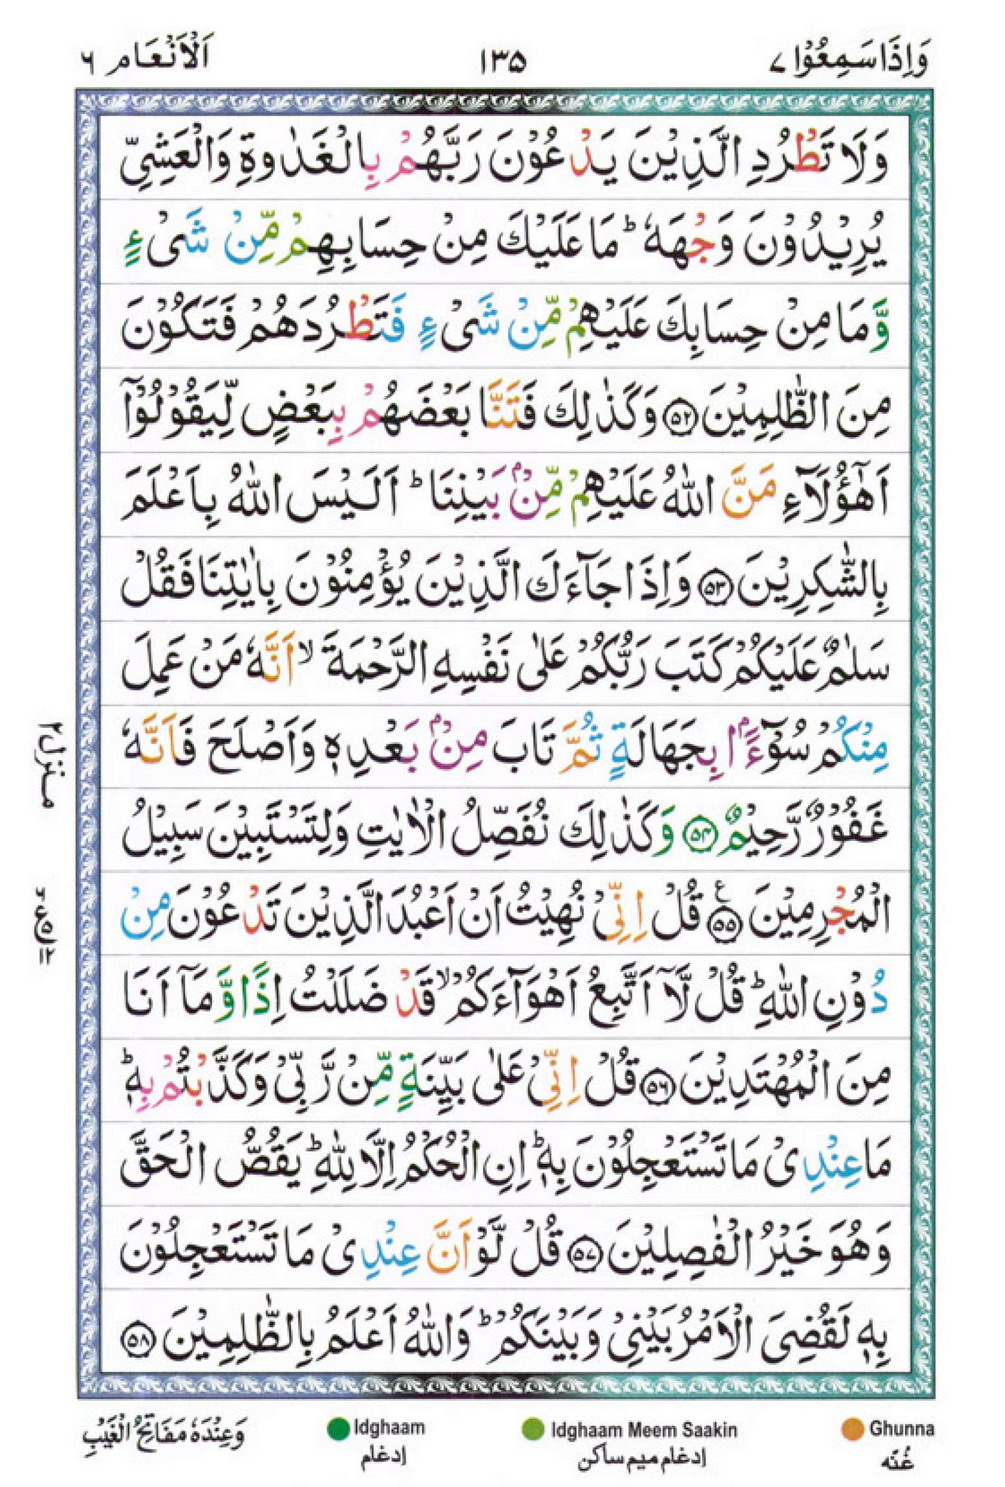 وَاِذَا سَمِعُوْا ۷ ۱۳۵ اَلْاَنْعَام ۶
وَلَا تَطْرُدِ الَّذِيْنَ يَدْعُوْنَ رَبَّهُمْ بِالْغَدٰوةِ وَالْعَشِىِّ
يُرِيْدُوْنَ وَجْهَهٗ ؕ مَا عَلَيْكَ مِنْ حِسَابِهِمْ مِّنْ شَىْءٍ
وَّمَا مِنْ حِسَابِكَ عَلَيْهِمْ مِّنْ شَىْءٍ فَتَطْرُدَهُمْ فَتَكُوْنَ
مِنَ الظّٰلِمِيْنَ ۵۲ وَكَذٰلِكَ فَتَنَّا بَعْضَهُمْ بِبَعْضٍ لِّيَقُوْلُوْۤا
اَهٰۤؤُلَآءِ مَنَّ اللّٰهُ عَلَيْهِمْ مِّنْۢ بَيْنِنَا ؕ اَلَيْسَ اللّٰهُ بِاَعْلَمَ
بِالشّٰكِرِيْنَ ۵۳ وَاِذَا جَآءَكَ الَّذِيْنَ يُؤْمِنُوْنَ بِاٰيٰتِنَا فَقُلْ
سَلٰمٌ عَلَيْكُمْ كَتَبَ رَبُّكُمْ عَلٰى نَفْسِهِ الرَّحْمَةَ ۙ اَنَّهٗ مَنْ عَمِلَ
مِنْكُمْ سُوْٓءًۢا بِجَهَالَةٍ ثُمَّ تَابَ مِنْۢ بَعْدِهٖ وَاَصْلَحَ فَاَنَّهٗ
غَفُوْرٌ رَّحِيْمٌ ۵۴ وَكَذٰلِكَ نُفَصِّلُ الْاٰيٰتِ وَلِتَسْتَبِيْنَ سَبِيْلُ
الْمُجْرِمِيْنَ ۵۵ ع قُلْ اِنِّىْ نُهِيْتُ اَنْ اَعْبُدَ الَّذِيْنَ تَدْعُوْنَ مِنْ
دُوْنِ اللّٰهِ ؕ قُلْ لَّاۤ اَتَّبِعُ اَهْوَآءَكُمْ ۙ قَدْ ضَلَلْتُ اِذًا وَّمَاۤ اَنَا
مِنَ الْمُهْتَدِيْنَ ۵۶ قُلْ اِنِّىْ عَلٰى بَيِّنَةٍ مِّنْ رَّبِّىْ وَكَذَّبْتُمْ بِهٖ ؕ
مَا عِنْدِىْ مَا تَسْتَعْجِلُوْنَ بِهٖ ؕ اِنِ الْحُكْمُ اِلَّا لِلّٰهِ ؕ يَقُصُّ الْحَقَّ
وَهُوَ خَيْرُ الْفٰصِلِيْنَ ۵۷ قُلْ لَّوْ اَنَّ عِنْدِىْ مَا تَسْتَعْجِلُوْنَ
بِهٖ لَقُضِىَ الْاَمْرُ بَيْنِىْ وَبَيْنَكُمْ ؕ وَاللّٰهُ اَعْلَمُ بِالظّٰلِمِيْنَ ۵۸
منزل ۲
وَعِنْدَهٗ مَفَاتِحُ الْغَيْبِ
Idghaam
ادغام
Idghaam Meem Saakin
ادغام میم ساکن
Ghunna
غُنّه